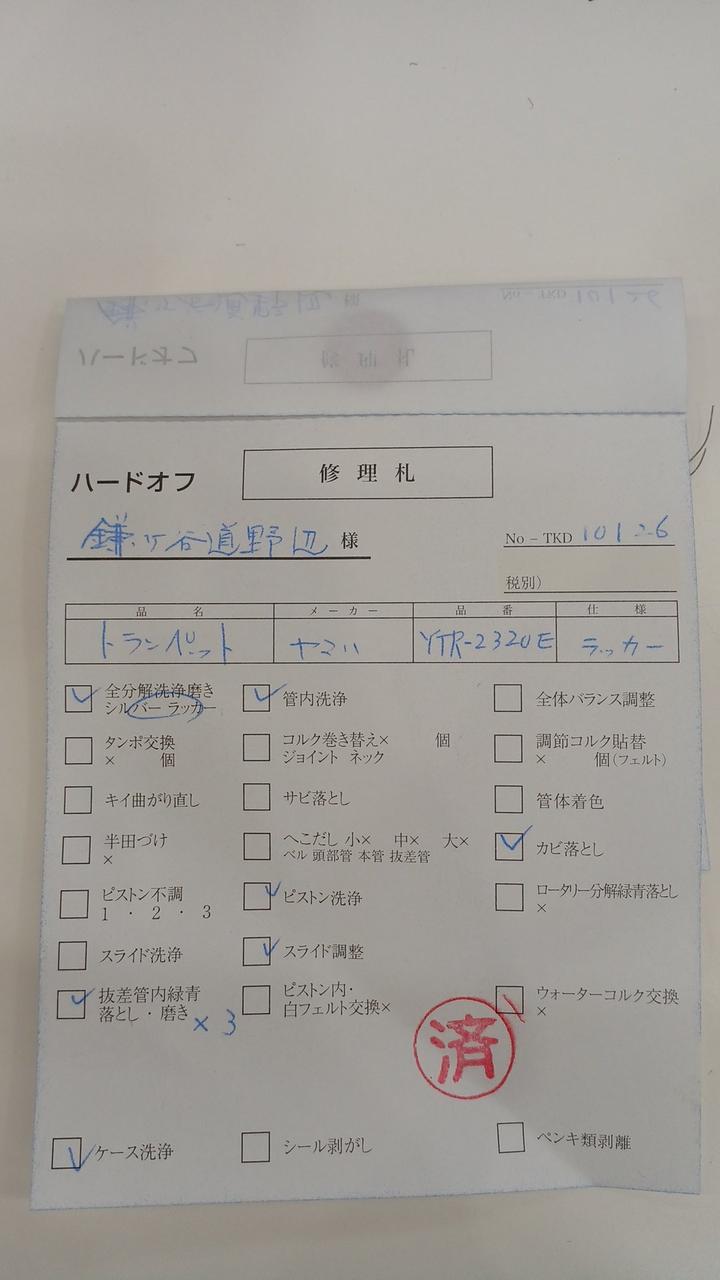 鎌ヶ谷道野辺 様
No－TKD 10126
ハードオフ
修理札
ハードオフ
修理札
鎌ヶ谷道野辺 様
No－TKD 10126
税別）
品名 メーカー 品番 仕様
トランペット ヤマハ YTR-2320E ラッカー
全分解洗浄磨き
シルバー ラッカー
管内洗浄
全体バランス調整
タンポ交換
× 個
コルク巻き替え× 個
ジョイント ネック
調節コルク貼替
× 個（フェルト）
キイ曲がり直し
サビ落とし
管体着色
半田づけ
×
へこだし 小× 中× 大×
ベル 頭部管 本管 抜差管
カビ落とし
ピストン不調
1・2・3
ピストン洗浄
ロータリー分解緑青落とし
×
スライド洗浄
スライド調整
抜差管内緑青
落とし・磨き ×3
ピストン内・
白フェルト交換×
ウォーターコルク交換
×
済
ケース洗浄
シール剥がし
ペンキ類剥離